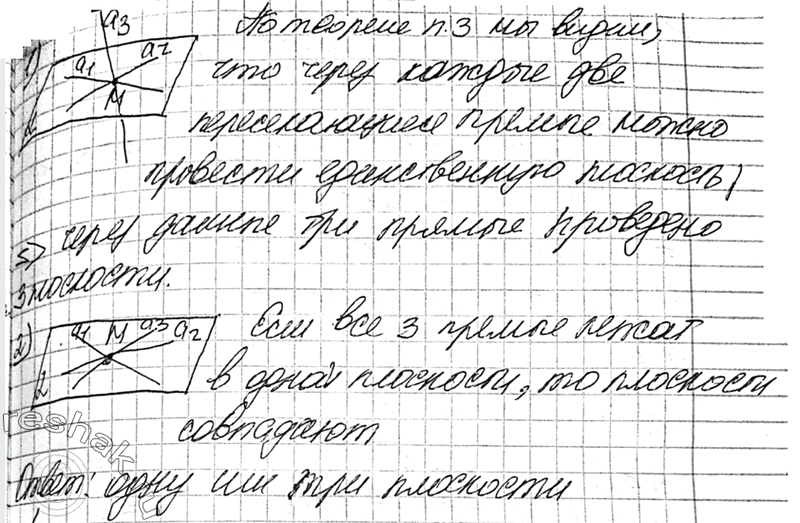 1) a₃ a₁ a₂ M α По теореме п.3 мы видим,
что через каждые две
пересекающиеся прямые можно
провести единственную плоскость,
=> через данные три прямые проведено
3 плоскости.
2) a₁ M a₃ a₂ α Если все 3 прямые лежат
в одной плоскости, то плоскости
совпадают
Ответ: одну или три плоскости
reshak